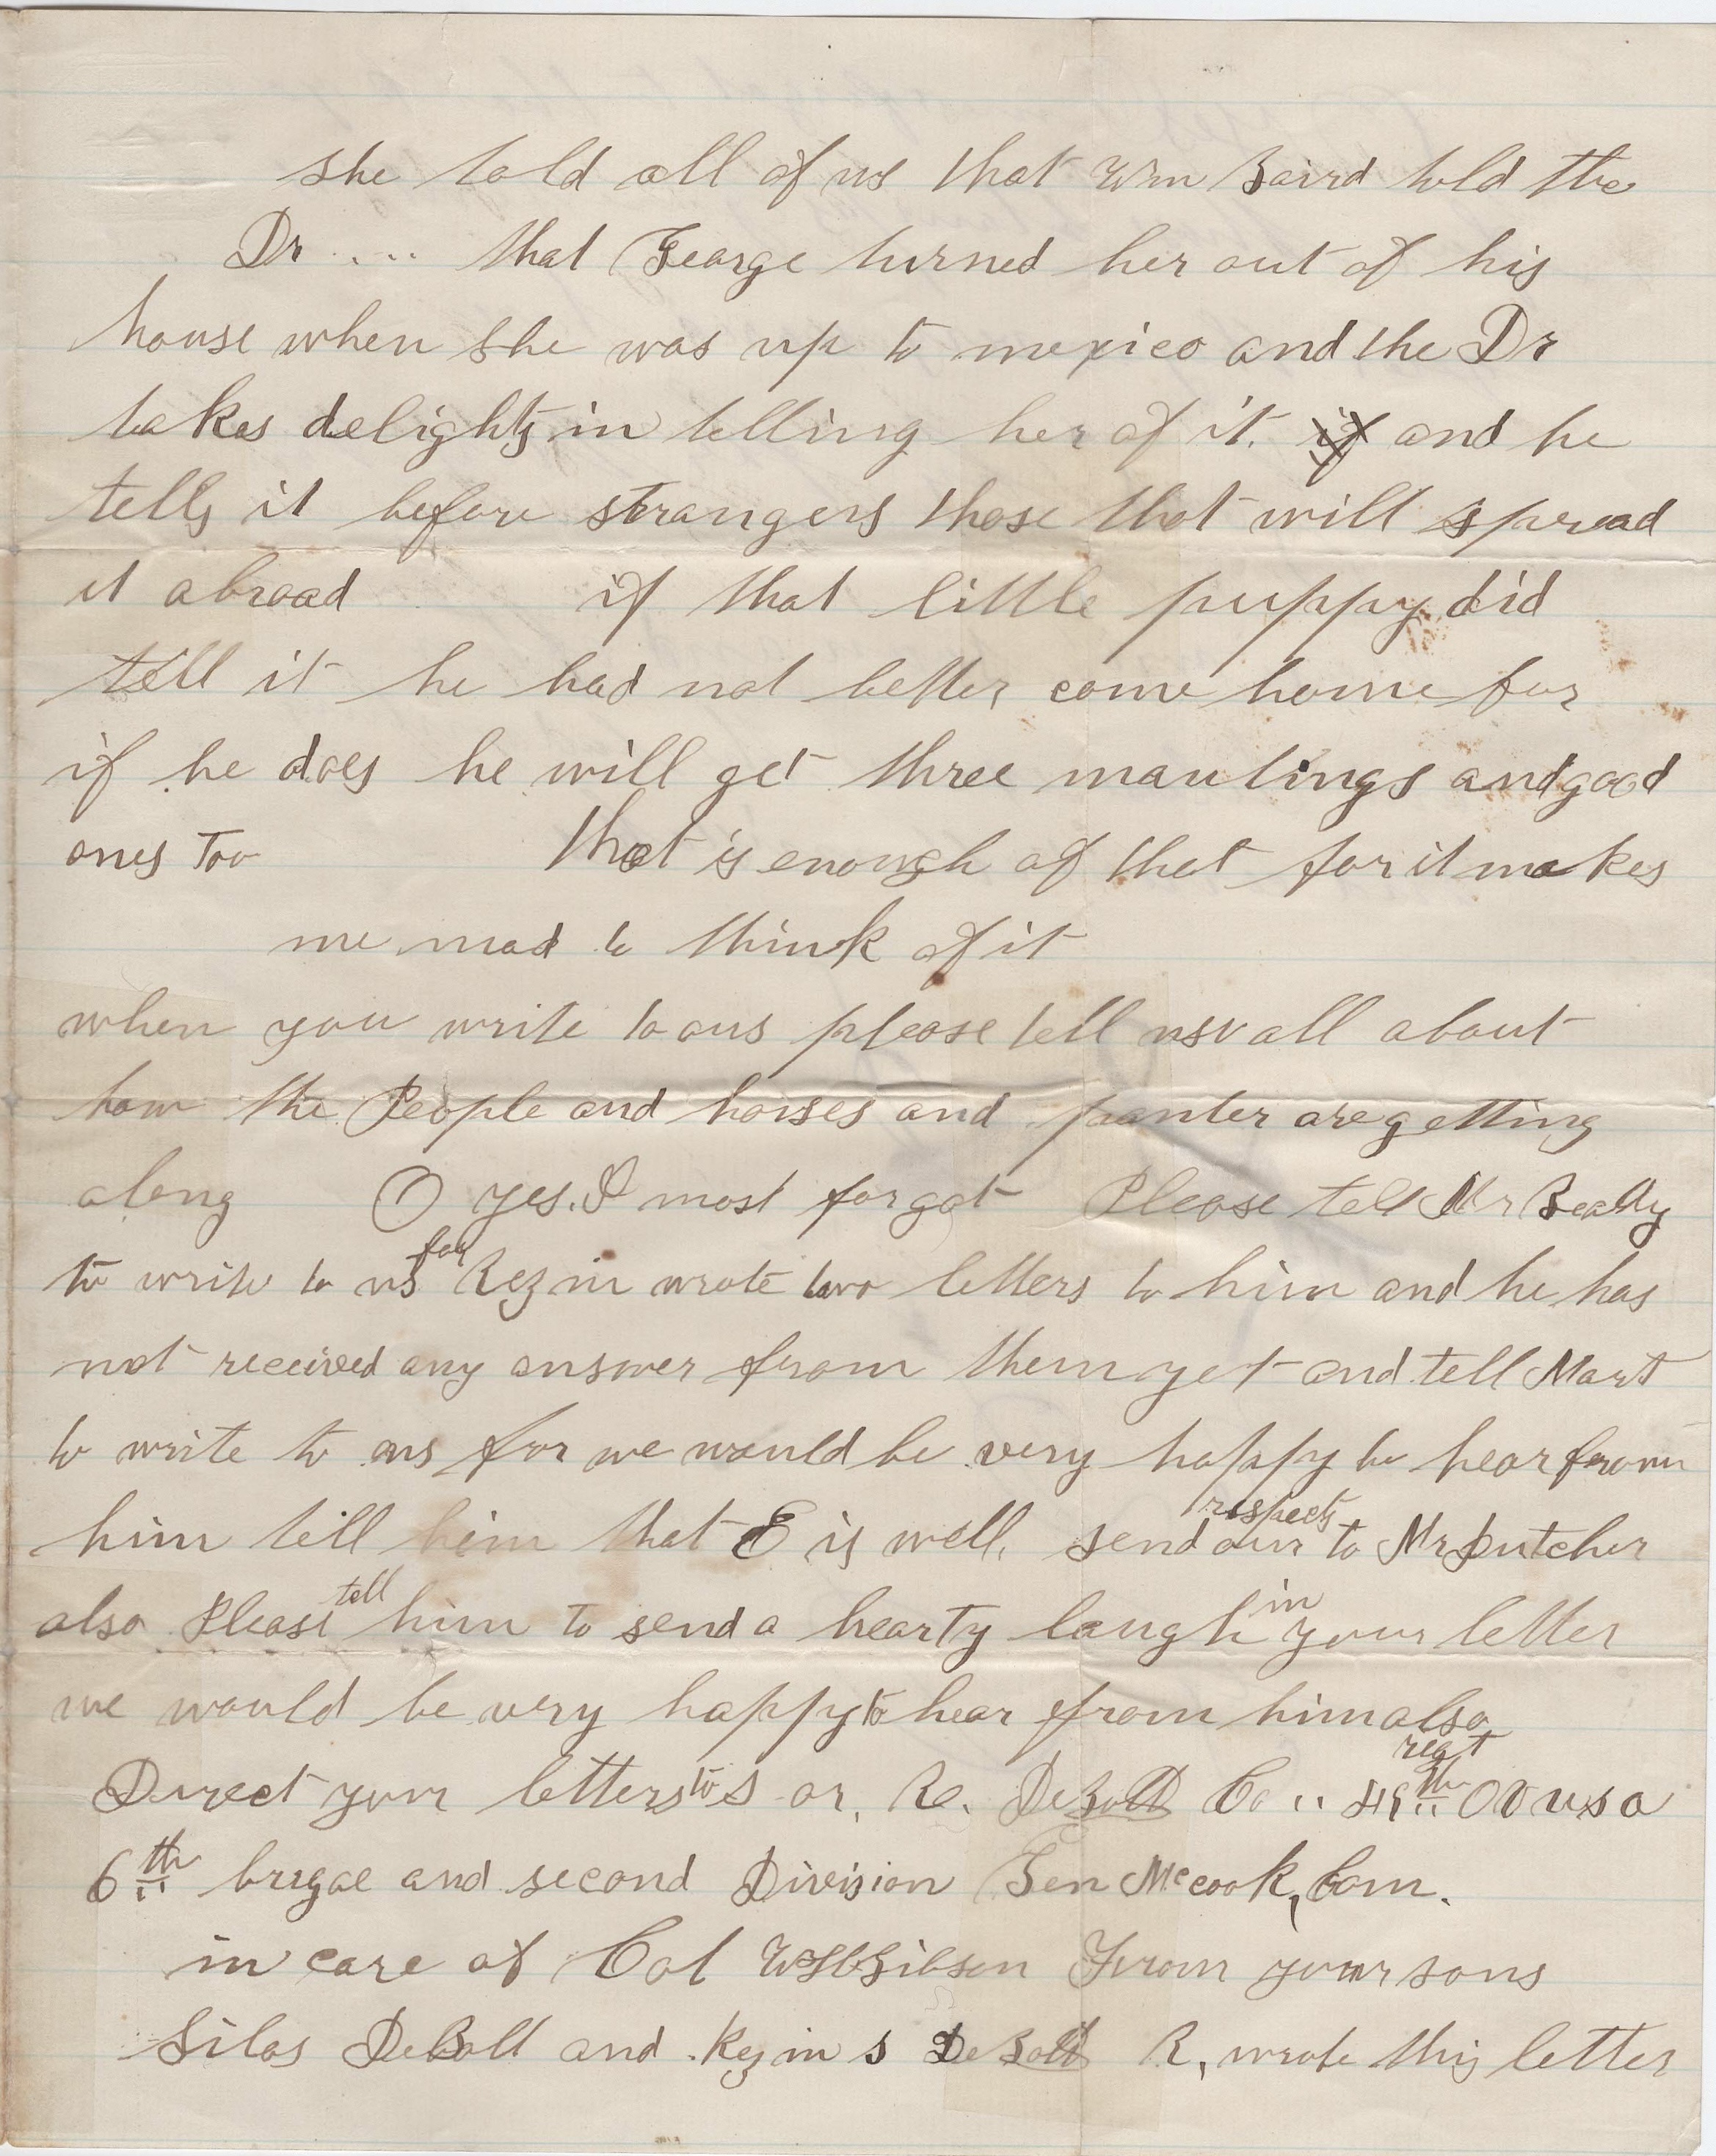 she told all of us that Wm Baird told the
Dr .... that George turned her out of his
house when she was up to mexico and the Dr
takes delights in telling her of it. if and he
tells it before strangers those that will spread
it abroad if that little puppy did
tell it he had not better come home for
if he does he will get three maulings and good
ones Too that is enough of that for it makes
me mad to think of it
when you write to ous please tell us all about
how the People and horses and panter are getting
along O yes. I most forgot Please tell Mr Beatty
to write to us for Rezin wrote two letters to him and he has
not received any answer from them yet and tell Mart
to write to ous for we would be very happy to hear from
him tell him that E is well. send our respects to Mr Dutcher
also Please tell him to send a hearty laugh in your letter
we would be very happy to hear from him also
Direct your letters to S or. R. DeBolt Co .. 49th regt O V U S A
6th brigae and second Division Gen McCook, Com.
in care of Col W H Gibson From your sons
Silas DeBolt and Rezin S DeBolt R, wrote this letter